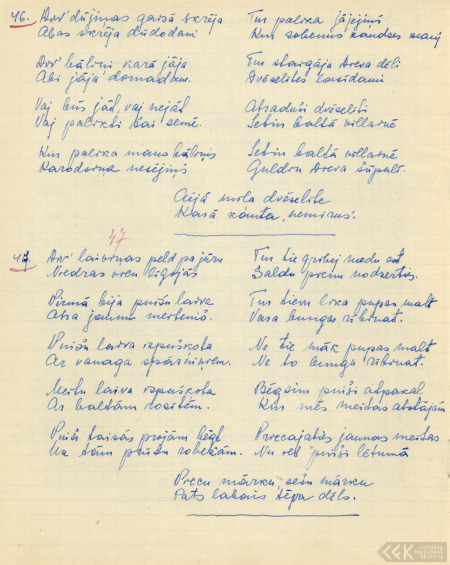 46. Div' dūjiņas gaisā skrēja
Abas skrēja dūdodami
Div' bāliņi karā jāja
Abi jāja domadami.
Vaj būs jāt, vaj nejāt
Vaj palikti šai zemē.
Kur palika mans bāliņis
Karodziņa nesējiņš
Tur palika jājējiņš
Kur zobeņus
Tur staigāja Dieva dēli
Dvēselītes lasīdami
Atraduši dvēselīti
Setin baltā villainē
Setin baltā villainē
Guldin Dieva šūpulī.
Aijā mīla dvēselīte
Karā kauta, nemirus'.
47
47. Div' laiviņas peld pa jūru
Niedras vien līgojās
Pirmā bija puišu laiva
Otra jaunu meiteniņ.
Puišu laiva izpuškota
Ar vanaga spārniņiem.
Meitu laiva izpuškota
Ar baltām
Puiši taisās projām bēgt
Uz tām
Tur tie gribēj medu ēst
Saldu pienu nodzerties.
Tur tiem lika pupas malt
Vara bungas rībināt.
Ne tie māk pupas malt
Ne to bungu rībināt.
Bēgsim puiši atpakaļ
Kur mēs meitas atstājām
Precajatēs jaunas meitas
Nu reti puiši lētumā
Piecu mārku, sešu mārku
Pats labais tēva dēls.
LATVIEŠU
FOLKLORAS
KRĀTUVE